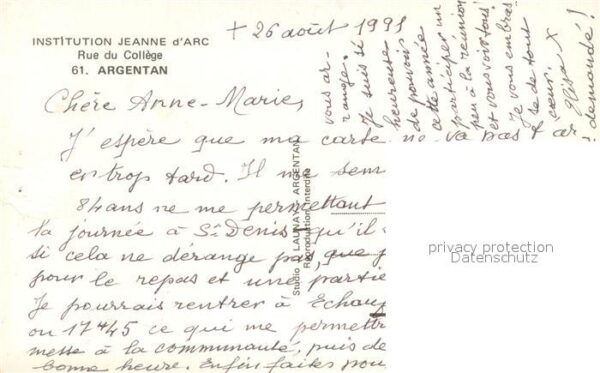 INSTITUTION JEANNE d'ARC
Rue du Collège
61. ARGENTAN
+ 26 août 1991
Chère Anne-Marie,
J'espère que ma carte ne va pas t ar
en trop tard. Il me sem
84 ans ne me permettant
la journée à St Denis, qu'il
si cela ne dérange pas, que
pour le repas et une partie
Je pourrais rentrer à Echau
ou 17 45 ce qui me permettr
messe à la communauté, puis de
bonne heure. Enfin faites pou
vous ar-
ranger.
Je suis si
heureuse
de pouvoir
cette année
participer un
peu à la réunion
et vous voir tous!
Je vous embras
se de tout
cœur. X
demandé!
Studio LAUNAY - ARGENTAN
Reproduction interdite
privacy protection
Datenschutz